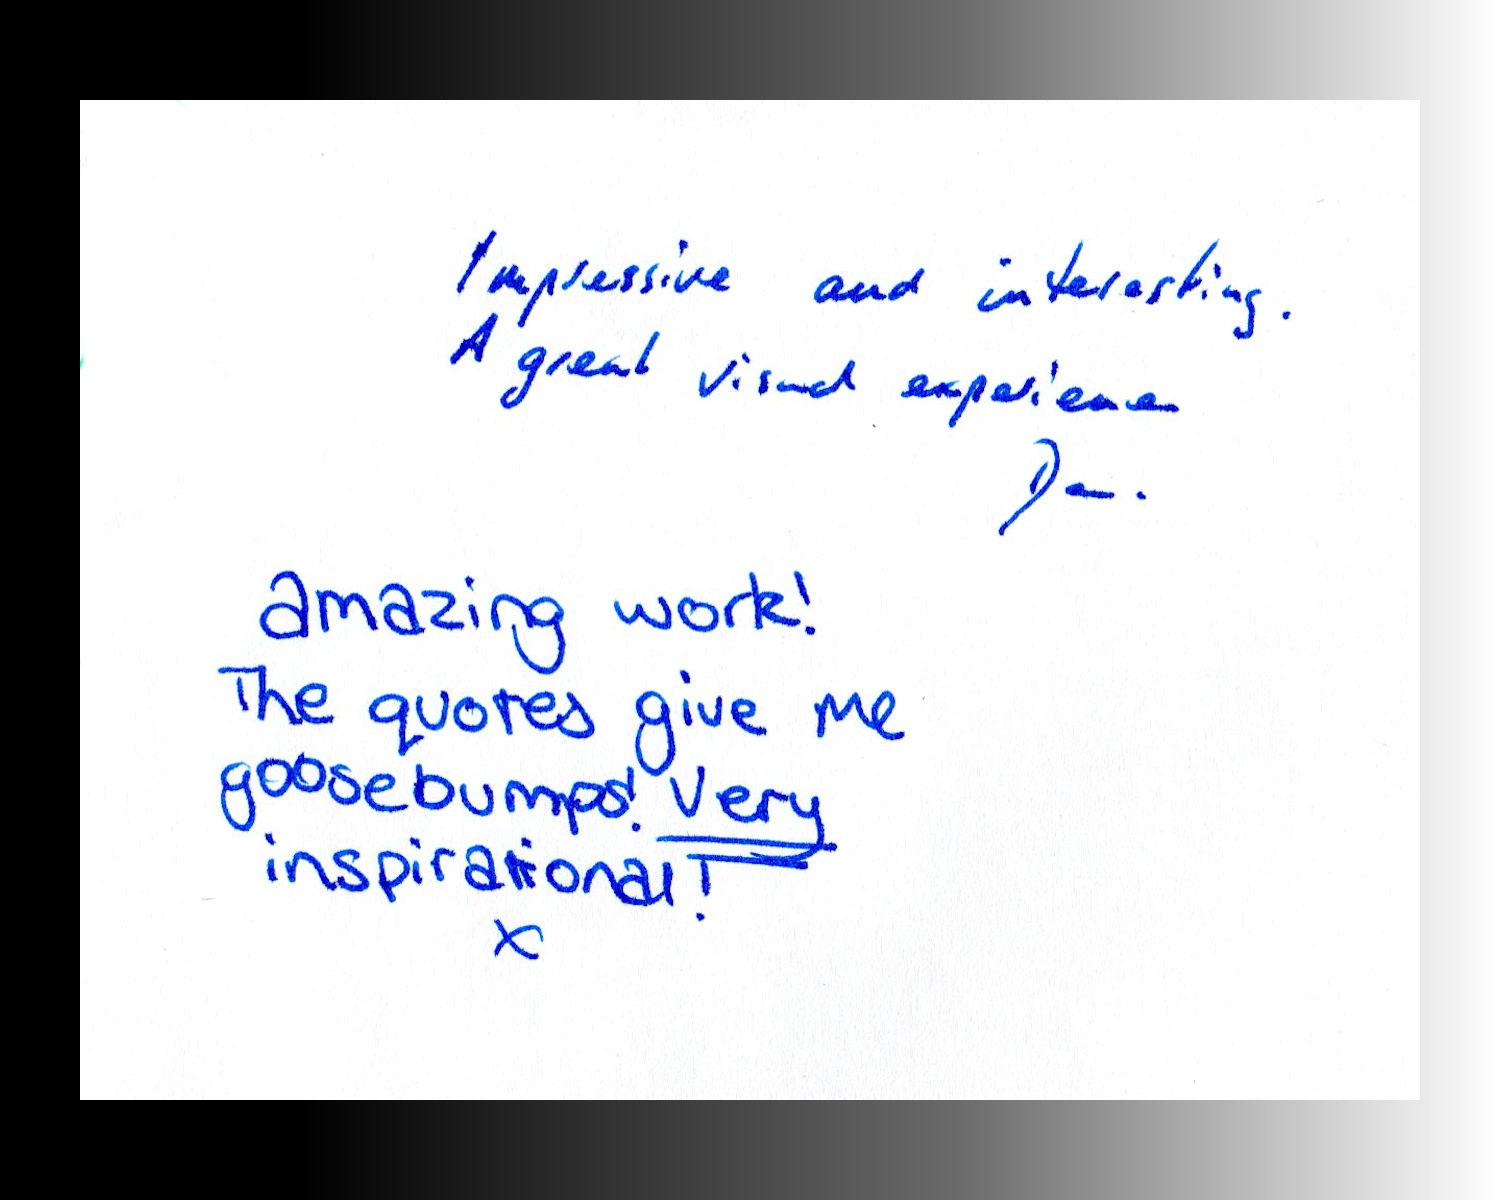 Impressive and interesting.
A great visual experience
amazing work!
The quotes give me
goosebumps! Very
inspirational!
x